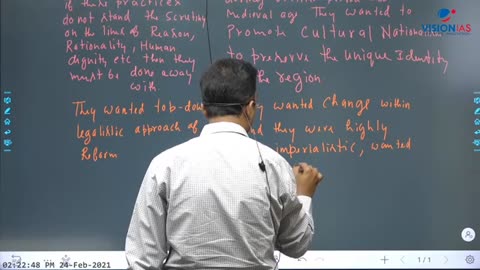 if these practices
do not stand the scrutiny
on the lines of Reason,
Rationality, Human
dignity etc then they
must be done away
with.
Medieval age They wanted to
Promote Cultural Nationalism
to preserve the Unique Identity
the region
They wanted top-down
legalistic approach of
Reform
wanted change within
and they were highly
imperialistic, wanted
VISIONIAS
02:22:48 PM 24-Feb-2021
1/1